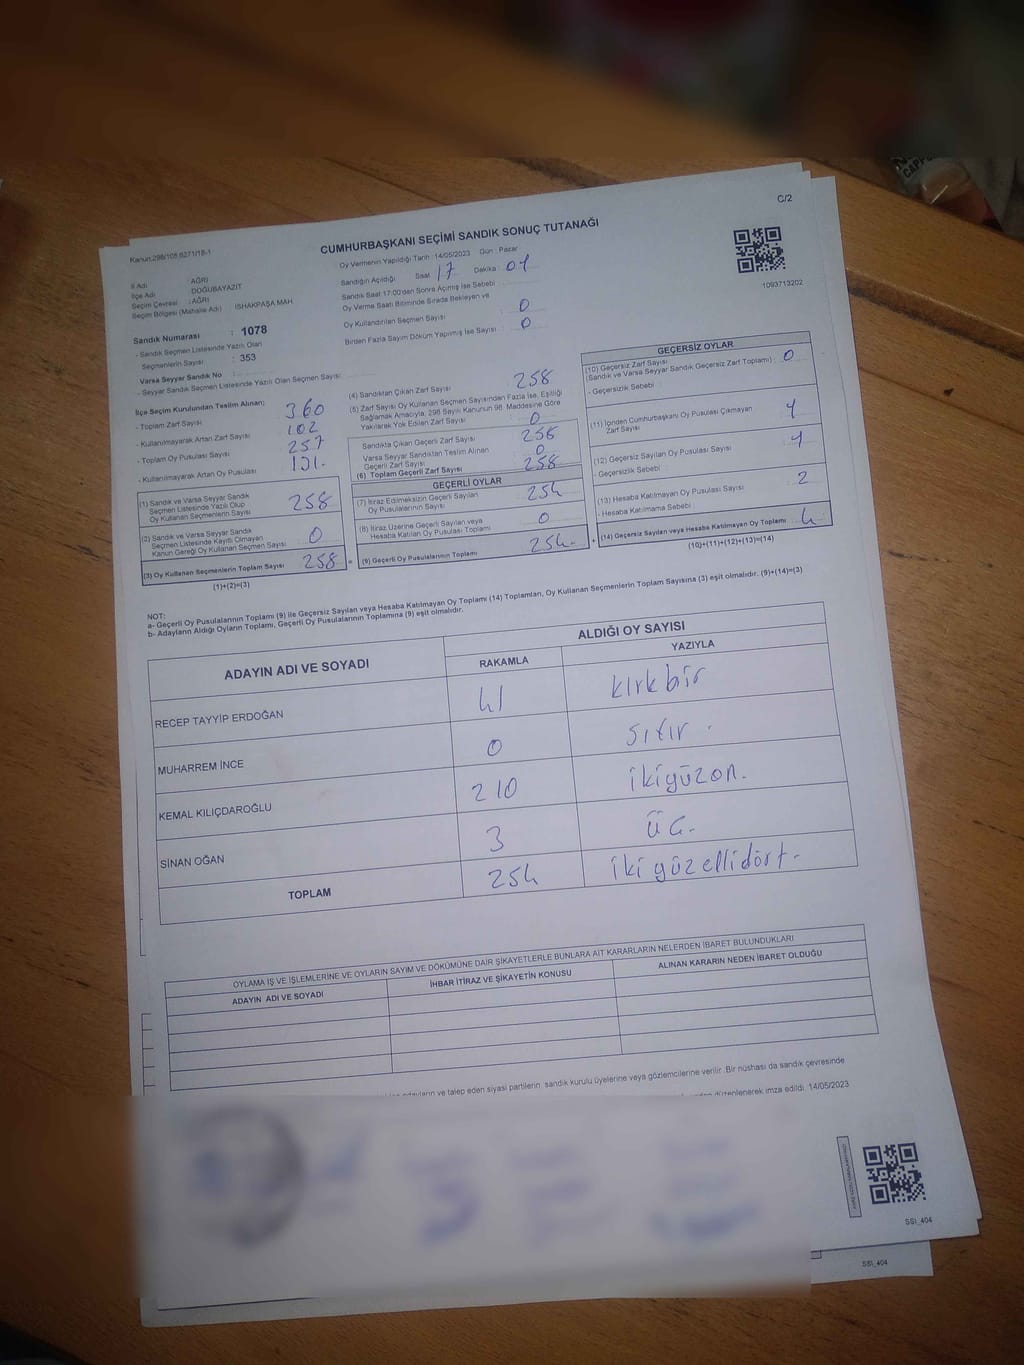 C/2
CUMHURBAŞKANI SEÇİMİ SANDIK SONUÇ TUTANAĞI
1093713202
İl Adı : AĞRI
İlçe Adı : DOĞUBAYAZIT
Seçim Çevresi : AĞRI
Seçim Bölgesi (Mahalle Adı) : İSHAKPAŞA MAH.
Sandık Numarası : 1078
- Sandık Seçmen Listesinde Yazılı Olan
Seçmenlerin Sayısı : 353
Varsa Seyyar Sandık No :
- Seyyar Sandık Seçmen Listesinde Yazılı Olan Seçmen Sayısı :
Oy Vermenin Yapıldığı Tarih : 14/05/2023 Gün : Pazar
Sandığın Açıldığı Saat 17 Dakika : 01
Sandık Saat 17:00'den Sonra Açılmış İse Sebebi :
Oy Verme Saati Bitiminde Sırada Bekleyen ve
Oy Kullandırılan Seçmen Sayısı : 0
Birden Fazla Sayım Döküm Yapılmış İse Sayısı : 0
İlçe Seçim Kurulundan Teslim Alınan;
- Toplam Zarf Sayısı : 360
- Kullanılmayarak Artan Zarf Sayısı : 102
- Toplam Oy Pusulası Sayısı : 257
- Kullanılmayarak Artan Oy Pusulası
(1) Sandık ve Varsa Seyyar Sandık
Seçmen Listesinde Yazılı Olup
Oy Kullanan Seçmenlerin Sayısı 258
(2) Sandık ve Varsa Seyyar Sandık
Seçmen Listesinde Kayıtlı Olmayan
Kanun Gereği Oy Kullanan Seçmen Sayısı 0
(3) Oy Kullanan Seçmenlerin Toplam Sayısı 258
(1)+(2)=(3)
(4) Sandıktan Çıkan Zarf Sayısı 258
(5) Zarf Sayısı Oy Kullanan Seçmen Sayısından Fazla İse, Eşitliği
Sağlamak Amacıyla, 298 Sayılı Kanunun 98. Maddesine Göre
Yakılarak Yok Edilen Zarf Sayısı 0
Sandıkta Çıkan Geçerli Zarf Sayısı 258
Varsa Seyyar Sandıktan Teslim Alınan
Geçerli Zarf Sayısı 0
(6) Toplam Geçerli Zarf Sayısı 258
GEÇERLİ OYLAR
(7) İtiraz Edilmeksizin Geçerli Sayılan
Oy Pusulalarının Sayısı 254
(8) İtiraz Üzerine Geçerli Sayılan veya
Hesaba Katılan Oy Pusulası Toplamı 0
(9) Geçerli Oy Pusulalarının Toplamı 254
GEÇERSİZ OYLAR
(10) Geçersiz Zarf Sayısı
(Sandık ve Varsa Seyyar Sandık Geçersiz Zarf Toplamı) : 0
- Geçersizlik Sebebi :
(11) İçinden Cumhurbaşkanı Oy Pusulası Çıkmayan
Zarf Sayısı 1
(12) Geçersiz Sayılan Oy Pusulası Sayısı 1
- Geçersizlik Sebebi
(13) Hesaba Katılmayan Oy Pusulası Sayısı 2
- Hesaba Katılmama Sebebi
(14) Geçersiz Sayılan veya Hesaba Katılmayan Oy Toplamı 4
(10)+(11)+(12)+(13)=(14)
NOT:
a- Geçerli Oy Pusulalarının Toplamı (9) ile Geçersiz Sayılan veya Hesaba Katılmayan Oy Toplamı (14) Toplamları, Oy Kullanan Seçmenlerin Toplam Sayısına (3) eşit olmalıdır. (9)+(14)=(3)
b- Adayların Aldığı Oyların Toplamı, Geçerli Oy Pusulalarının Toplamına (9) eşit olmalıdır.
ADAYIN ADI VE SOYADI
ALDIĞI OY SAYISI
RAKAMLA YAZIYLA
RECEP TAYYİP ERDOĞAN 41 kırkbir
MUHARREM İNCE 0 sıfır.
KEMAL KILIÇDAROĞLU 210 ikiyüzon.
SİNAN OĞAN 3 üç.
TOPLAM 254 ikiyüzellidört.
OYLAMA İŞ VE İŞLEMLERİNE VE OYLARIN SAYIM VE DÖKÜMÜNE DAİR ŞİKAYETLERLE BUNLARA AİT KARARLARIN NELERDEN İBARET BULUNDUKLARI
ADAYIN ADI VE SOYADI İHBAR İTİRAZ VE ŞİKAYETİN KONUSU ALINAN KARARIN NEDEN İBARET OLDUĞU
ve talep eden siyasi partilerin, sandık kurulu üyelerine veya gözlemcilerine verilir. Bir nüshası da sandık çevresinde
düzenlenerek imza edildi. 14/05/2023
SSI_404
SSI_404